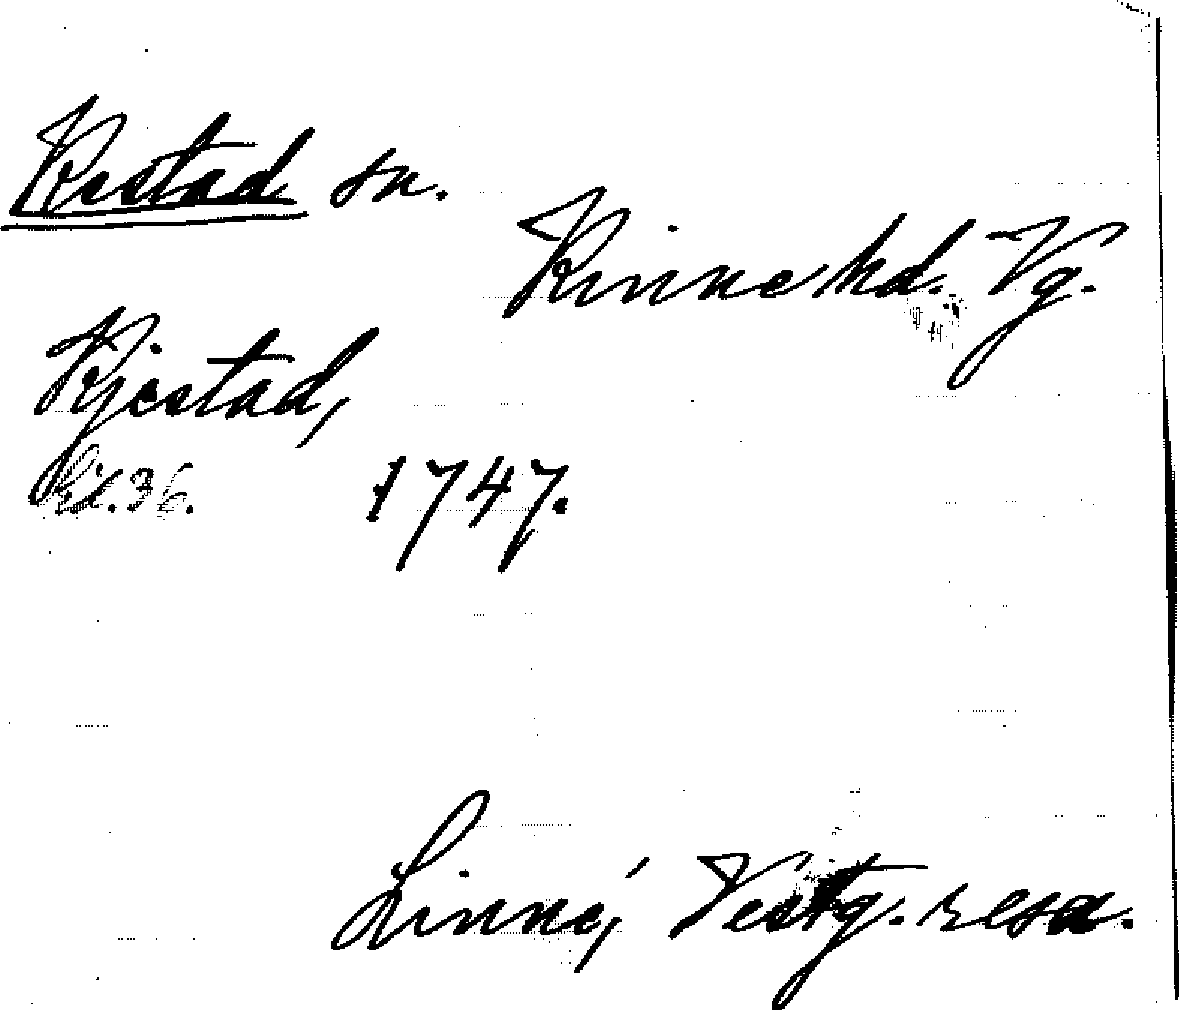 Kestad sn.
Kinne hd. Vg.
Kjestad,
sid. 36. 1747.
Linné, Västg. resa.